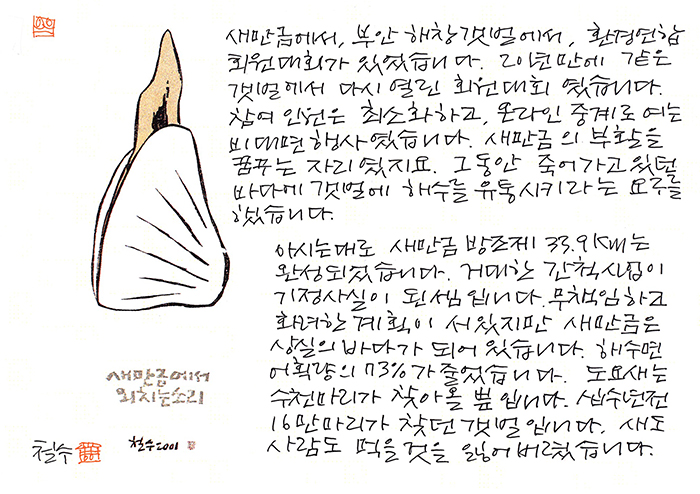 새만금에서, 부안 해창갯벌에서, 환경연합
회원대회가 있었습니다. 20년만에 같은
갯벌에서 다시 열린 회원대회 였습니다.
참여 인원은 최소화하고, 온라인 중계로 여는
비대면행사였습니다. 새만금의 부활을
꿈꾸는 자리였지요. 그동안 죽어가고 있던
바다에 갯벌에 해수를 유통시키라는 요구를
했습니다.
아시는대로 새만금 방조제 33.9km는
완성되었습니다. 거대한 간척사업이
기정사실이 된셈입니다. 무책임하고
화려한 계획이 서있지만 새만금은
상실의 바다가 되어 있습니다. 해수면
어획량의 73%가 줄었습니다. 도요새는
수천마리가 찾아올 뿐입니다. 십수년전
16만마리가 찾던 갯벌입니다. 새도
사람도 먹을 것을 잃어버렸습니다.
새만금에서
외치는소리
철수2001
철수